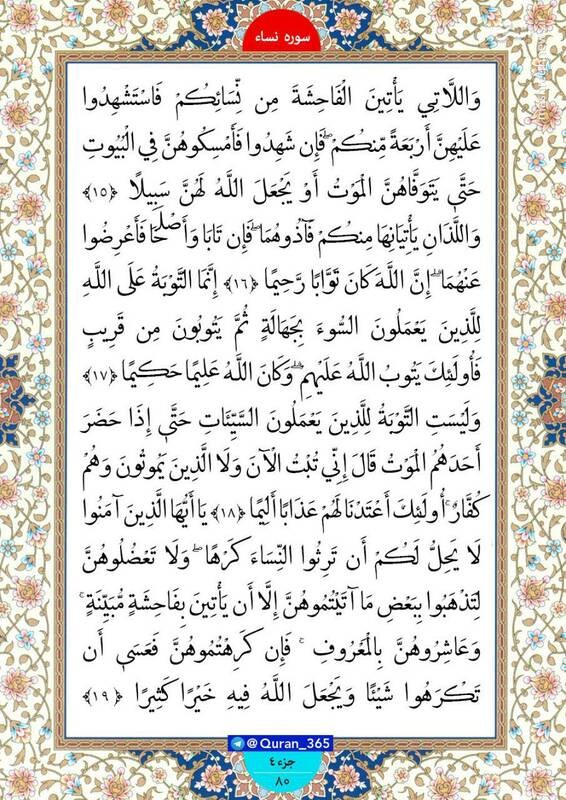 سوره نساء
وَاللَّاتِي يَأْتِينَ الْفَاحِشَةَ مِن نِّسَائِكُمْ فَاسْتَشْهِدُوا
عَلَيْهِنَّ أَرْبَعَةً مِّنكُمْ ۖ فَإِن شَهِدُوا فَأَمْسِكُوهُنَّ فِي الْبُيُوتِ
حَتَّىٰ يَتَوَفَّاهُنَّ الْمَوْتُ أَوْ يَجْعَلَ اللَّهُ لَهُنَّ سَبِيلًا ﴿١٥﴾
وَاللَّذَانِ يَأْتِيَانِهَا مِنكُمْ فَآذُوهُمَا ۖ فَإِن تَابَا وَأَصْلَحَا فَأَعْرِضُوا
عَنْهُمَا ۗ إِنَّ اللَّهَ كَانَ تَوَّابًا رَّحِيمًا ﴿١٦﴾ إِنَّمَا التَّوْبَةُ عَلَى اللَّهِ
لِلَّذِينَ يَعْمَلُونَ السُّوءَ بِجَهَالَةٍ ثُمَّ يَتُوبُونَ مِن قَرِيبٍ
فَأُولَٰئِكَ يَتُوبُ اللَّهُ عَلَيْهِمْ ۗ وَكَانَ اللَّهُ عَلِيمًا حَكِيمًا ﴿١٧﴾
وَلَيْسَتِ التَّوْبَةُ لِلَّذِينَ يَعْمَلُونَ السَّيِّئَاتِ حَتَّىٰ إِذَا حَضَرَ
أَحَدَهُمُ الْمَوْتُ قَالَ إِنِّي تُبْتُ الْآنَ وَلَا الَّذِينَ يَمُوتُونَ وَهُمْ
كُفَّارٌ ۚ أُولَٰئِكَ أَعْتَدْنَا لَهُمْ عَذَابًا أَلِيمًا ﴿١٨﴾ يَا أَيُّهَا الَّذِينَ آمَنُوا
لَا يَحِلُّ لَكُمْ أَن تَرِثُوا النِّسَاءَ كَرْهًا ۖ وَلَا تَعْضُلُوهُنَّ
لِتَذْهَبُوا بِبَعْضِ مَا آتَيْتُمُوهُنَّ إِلَّا أَن يَأْتِينَ بِفَاحِشَةٍ مُّبَيِّنَةٍ ۚ
وَعَاشِرُوهُنَّ بِالْمَعْرُوفِ ۚ فَإِن كَرِهْتُمُوهُنَّ فَعَسَىٰ أَن
تَكْرَهُوا شَيْئًا وَيَجْعَلَ اللَّهُ فِيهِ خَيْرًا كَثِيرًا ﴿١٩﴾
@Quran_365
جزء ٤
٨٠